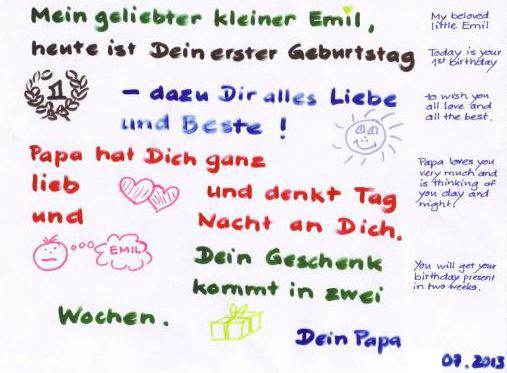 Mein geliebter kleiner Emil,
My beloved
little Emil
heute ist Dein erster Geburtstag
Today is your
1st Birthday
1
– dazu Dir alles Liebe
und Beste !
to wish you
all love and
all the best.
Papa hat Dich ganz
lieb und denkt Tag
und Nacht an Dich.
Papa loves you
very much and
is thinking of
you day and
night!
EMIL
Dein Geschenk
kommt in zwei
Wochen.
You will get your
birthday present
in two weeks.
Dein Papa
07.2013